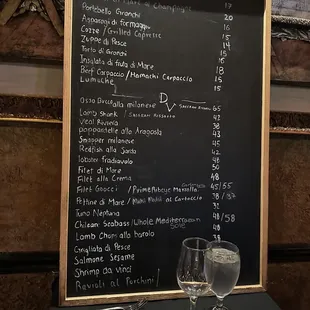 Portobello Gronchi 20
Asparagi di formaggi 16
Cozze / Grilled Caprese 15
Zuppe di Pesce 14
Torto di Gronchi 15
Insalata di fruta di Mare 18
Beef Carpaccio / Hamachi Carpaccio 15
Lumache 15
DV
Osso Bucco alla milanese 65
Lamb Shank / 42
Veal Rouleria 45
pappardelle alla Aragosta
Snapper milanese
Redfish alla Sarda 42
lobster fradiavolo
Filet di Mare 50
Filet alla Crema 48
Filet Gnocci / Prime Ribeye Marsalla 45/55
Pettine di Mare / Mahi Mahi al Cartoccio 38/
Tuno Neptuna 48
Chilean Seabass / Whole Mediterranean Sole 48/58
Lamb Chops alla barolo
Grigliata di Pesce
Salmone Sesame
Shrimp da vinci
Ravioli al Porchini